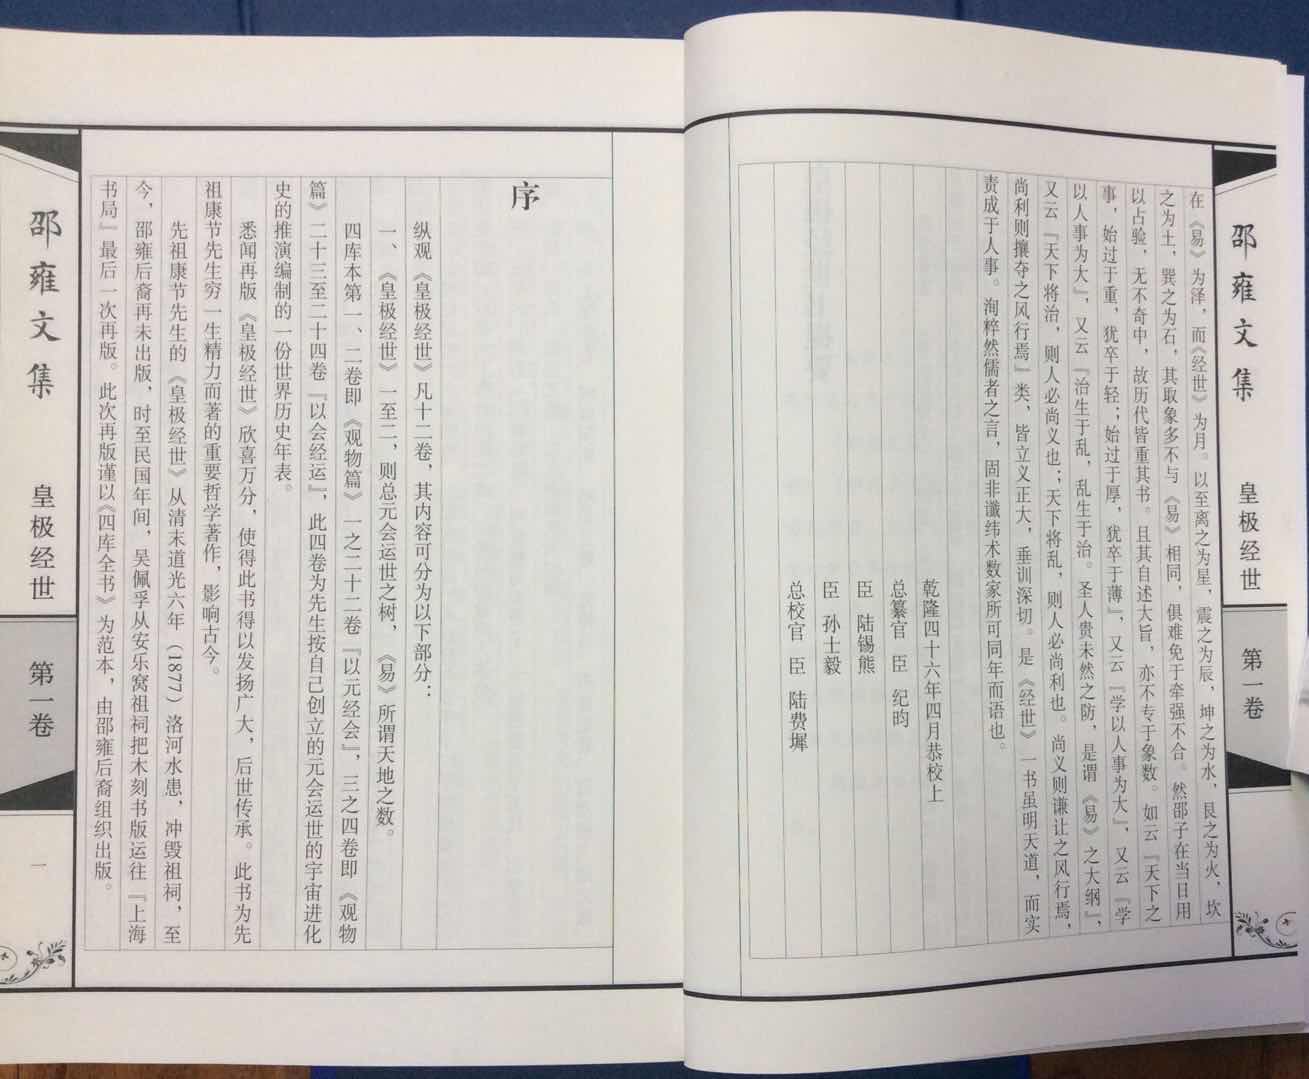 邵雍文集
皇极经世
第一卷
在《易》为泽，而《经世》为月。以至离之为星，震之为辰，坤之为水，艮之为火，坎
之为土，巽之为石，其取象多不与《易》相同，俱难免于牵强不合。然邵子在当日用
以占验，无不奇中，故历代皆重其书。且其自述大旨，亦不专于象数。如云『天下之
事，始过于重，犹卒于轻；始过于厚，犹卒于薄』，又云『学以人事为大』，又云『学
以人事为大』，又云『治生于乱，乱生于治。圣人贵未然之防，是谓《易》之大纲』，
又云『天下将治，则人必尚义也；天下将乱，则人必尚利也。尚义则谦让之风行焉，
尚利则攘夺之风行焉』类，皆立义正大，垂训深切。是《经世》一书虽明天道，而实
责成于人事。洵粹然儒者之言，固非谶纬术数家所可同年而语也。
乾隆四十六年四月恭校上
总纂官 臣 纪昀
臣 陆锡熊
臣 孙士毅
总校官 臣 陆费墀
序
纵观《皇极经世》凡十二卷，其内容可分为以下部分：
一、《皇极经世》一至二，则总元会运世之树，《易》所谓天地之数。
四库本第一、二卷即《观物篇》一之二十二卷『以元经会』，三之四卷即《观物
篇》二十三至二十四卷『以会经运』，此四卷为先生按自己创立的元会运世的宇宙进化
史的推演编制的一份世界历史年表。
悉闻再版《皇极经世》欣喜万分，使得此书得以发扬广大，后世传承。此书为先
祖康节先生穷一生精力而著的重要哲学著作，影响古今。
先祖康节先生的《皇极经世》从清末道光六年（1877）洛河水患，冲毁祖祠，至
今，邵雍后裔再未出版，时至民国年间，吴佩孚从安乐窝祖祠把木刻书版运往『上海
书局』最后一次再版。此次再版谨以《四库全书》为范本，由邵雍后裔组织出版。
邵雍文集
皇极经世
第一卷
一